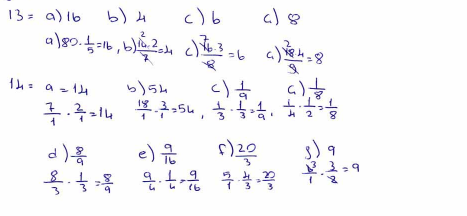 13= a) 16 b) 4 c) 6 ç) 8
a) 80 · 1/5 = 16, b) 14·2/7 = 4 c) 16·3/8 = 6 ç) 18·4/9 = 8
14= a = 14 b) 54 c) 1/9 ç) 1/8
7/1 · 2/1 = 14 18/1 · 3/1 = 54, 1/3 · 1/3 = 1/9, 1/4 · 1/2 = 1/8
d) 8/9 e) 9/16 f) 20/3 g) 9
8/3 · 1/3 = 8/9 9/4 · 1/4 = 9/16 5/1 · 4/3 = 20/3 6/1 · 3/2 = 9